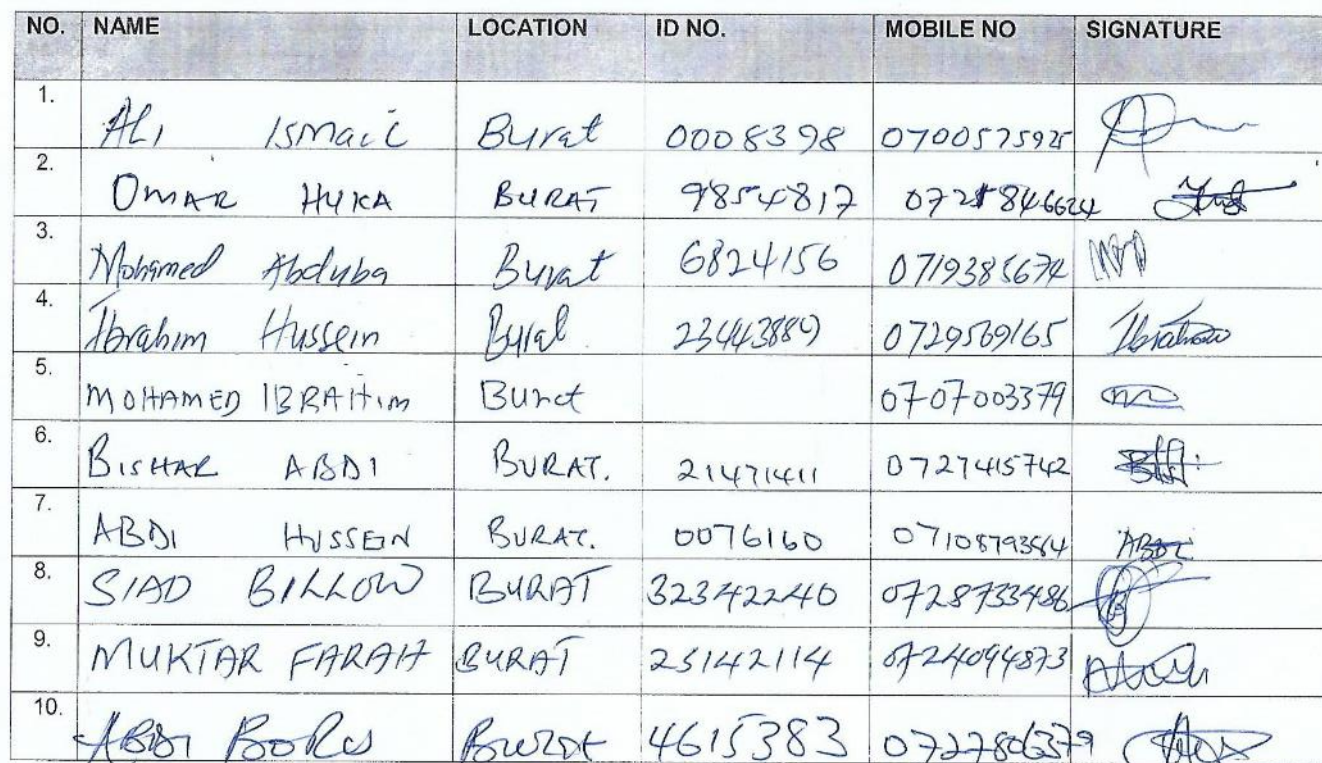 NO. NAME LOCATION ID NO. MOBILE NO SIGNATURE
1. Ali Ismail Burat 0008398 0700575925
2. OMAR HUKA BURAT 9854817
3. Mohamed Abduba Burat 6824156 0719385674
4. Ibrahim Hussein Burat 23443889 0729569165 Ibrahim
5. MOHAMED IBRAHim Burat 0707003379
6. BISHAR ABDI BURAT. 21471411 0727415742
7. ABDI HUSSEIN BURAT. 0076160 ABDI
8. SIAD BILLOW BURAT 32342240 0728733486
9. MUKTAR FARAH BURAT 25142114 0724094873
10. ABDI 4615383 0727806379